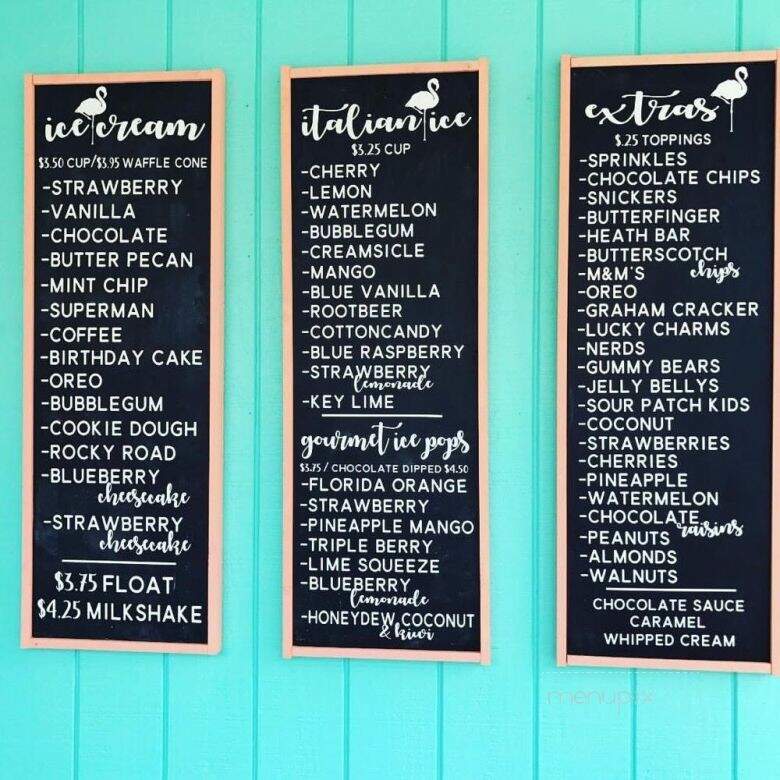 ice cream
$3.50 CUP/$3.95 WAFFLE CONE
-STRAWBERRY
-VANILLA
-CHOCOLATE
-BUTTER PECAN
-MINT CHIP
-SUPERMAN
-COFFEE
-BIRTHDAY CAKE
-OREO
-BUBBLEGUM
-COOKIE DOUGH
-ROCKY ROAD
-BLUEBERRY
cheesecake
-STRAWBERRY
cheesecake
$3.75 FLOAT
$4.25 MILKSHAKE
italian ice
$3.25 CUP
-CHERRY
-LEMON
-WATERMELON
-BUBBLEGUM
-CREAMSICLE
-MANGO
-BLUE VANILLA
-ROOTBEER
-COTTONCANDY
-BLUE RASPBERRY
-STRAWBERRY
lemonade
-KEY LIME
gourmet ice pops
$3.75 / CHOCOLATE DIPPED $4.50
-FLORIDA ORANGE
-STRAWBERRY
-PINEAPPLE MANGO
-TRIPLE BERRY
-LIME SQUEEZE
-BLUEBERRY
lemonade
-HONEYDEW, COCONUT
& kiwi
extras
$.25 TOPPINGS
-SPRINKLES
-CHOCOLATE CHIPS
-SNICKERS
-BUTTERFINGER
-HEATH BAR
-BUTTERSCOTCH
chips
-M&M'S
-OREO
-GRAHAM CRACKER
-LUCKY CHARMS
-NERDS
-GUMMY BEARS
-JELLY BELLYS
-SOUR PATCH KIDS
-COCONUT
-STRAWBERRIES
-CHERRIES
-PINEAPPLE
-WATERMELON
-CHOCOLATE
raisins
-PEANUTS
-ALMONDS
-WALNUTS
CHOCOLATE SAUCE
CARAMEL
WHIPPED CREAM
menupix